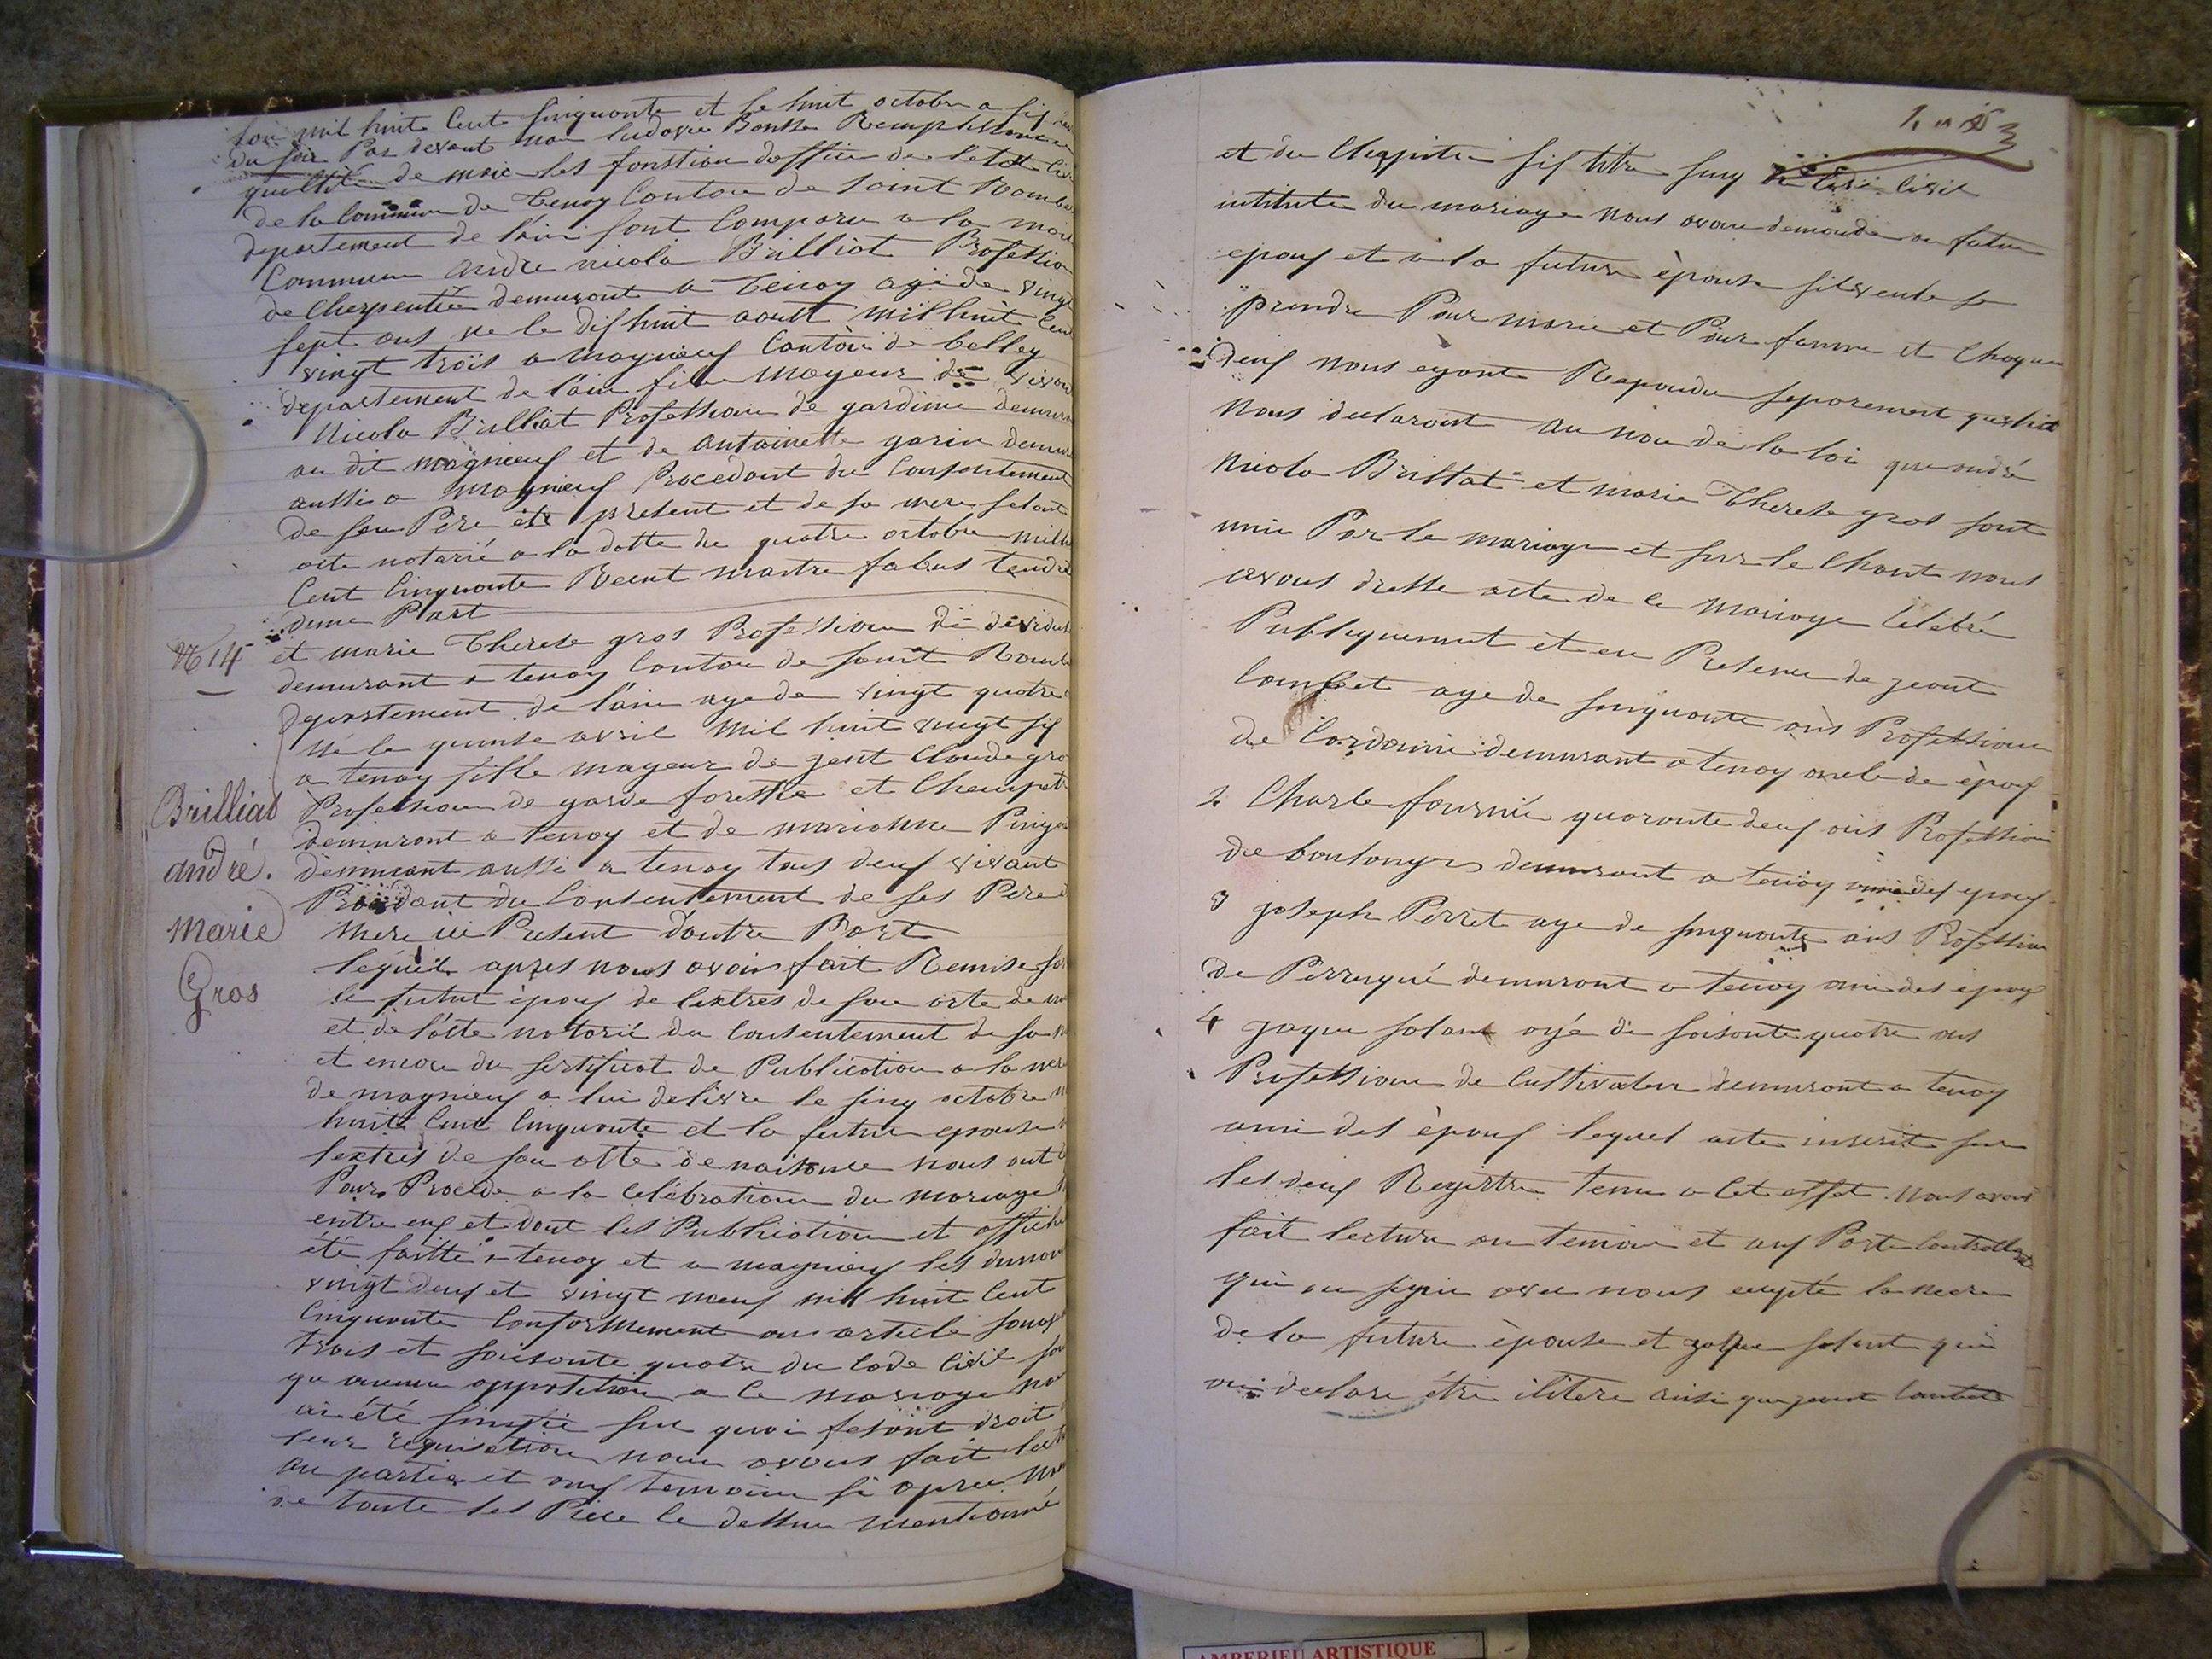 lan mil huit Cent sinquante et le huit octobre a six
du soir Par devant nou ludovic Remplissant
quilité de maire les fonstion doffisier de letat Civ
de la Commune de tenay Canton de saint Rombe
departement de lain sont Comparu a la
Commune andre nicola Brilliat Profession
de Cherpentier demurant a Tenay agé de vingt
sept ans ne le dix huit aoutt mil huit Cent
vingt trois a magnieux Canton de belley
departement de lain fils mageur de vivan
Nicola Brilliat Profession de gardinie demura
au dit magnieux et de antoinette garin demur
aussi a magnieux Procedant du Consentement
de son Pere ete present et de sa mere selont
acte notarié a la datte du quatre octobre mil h
Cent Cinquante Recut maitre
dune Part
et marie Therese gros Profession de devideuse
demurant a tenay Canton de saint Romb
Departement de lain age de vingt quatre
né le quinse avril mil huit vingt six
a tenay fille mageur de jent Claude gro
Profession de garde forestie et Champet
demurant a tenay et de marianne
demurant aussi a tenay tous deux vivant
Procedant du Consentement de ses Pere e
mere ici Present dautre Part
N 14
Brilliat
andré.
marie
Gros
lequel apres nous avoir fait Remise
le futur époux de lextres de son acte de
et de lacte notarié du Consentement de sa m
et encore du sertificat de Publication a la
de magnieux a lui delivre le sinq octobre
huit Cent Cinquante et la future epouse
lextres de son atte de naisance nous ont
Pour Procede a la Celébration du mariage
entre eux et dont les Publication et affiche
été faitte a tenay et a magnieux les
vingt deux et vingt neuf mil huit Cent
Cinquante Conformement au article
trois et soisante quatre du Code Civil
qu aucune opposition a le mariage
ai été sinifié sur quoi fesant droit
leur requisition nous avons fait lect
au partie et aux temoins si apres
de toute les Piece le dessu mentionné
et du Chapitre six titre sinq du Code Civil
intitule du mariage nous avon demande au futur
epoux et a la future épouse silveule se
prendre Pour marie et Pour famme et Chaqun
deux nous eyant Repondu separement
nous declaront au non de la loi que andré
nicola Brillat et marie Therese gros sont
unie Par le mariage et sur le Chant nous
avons dresse acte de le mariage Célebré
Publiquement et en Presence de jeant
age de sinquante ans Profession
de Cordonnie demurant a tenay oncle de époux
2 Charle fournié quarante deux ans Profession
de boulonger demurant a tenay ami des epoux
3 joseph Perret age de sinquante ans Profession
de Perruqué demurant a tenay ami des époux
4 jaque agé de soisante quatre ans
Profession de Cultivateur demurant a tenay
ami des époux lequel acte inscrit sur
les deux Registre tenu a Cet effet. Nous avons
fait lecture au temoin et aux Parte Contractant
qui on signe avec nous exepté la mere
de la future épouse et
on declare étre ilitere ainsi que jeant
AMBERIEU ARTISTIQUE